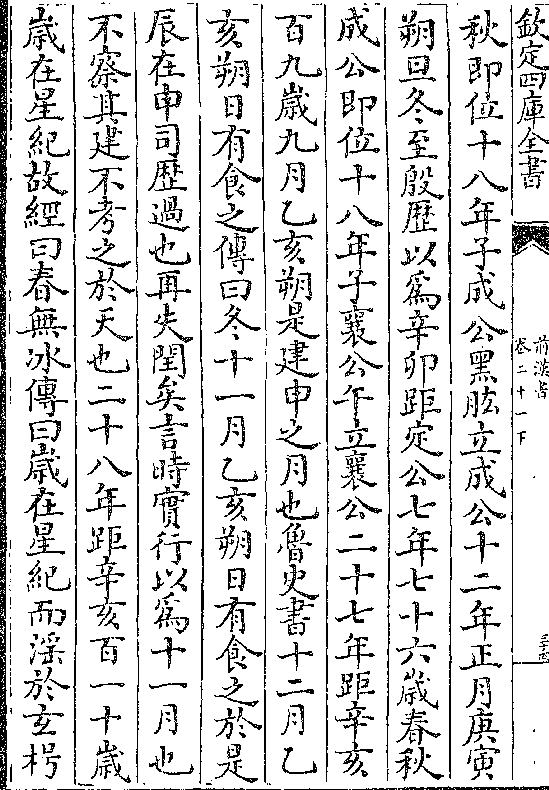 欽定四庫全書
前漢書
卷二十一下
秋即位十八年子成公黑肱立成公十二年正月庚寅
朔旦冬至殷歴以爲辛卯距定公七年七十六歲春秋
成公即位十八年子襄公午立襄公二十七年距辛亥
百九歲九月乙亥朔是建申之月也魯史書十二月乙
亥朔日有食之傳曰冬十一月乙亥朔日有食之於是
辰在申司歴過也再失閏矣言時實行以爲十一月也
不察其建不考之於天也二十八年距辛亥百一十歲
歲在星紀故經曰春無冰傳曰歲在星紀而淫於玄枵